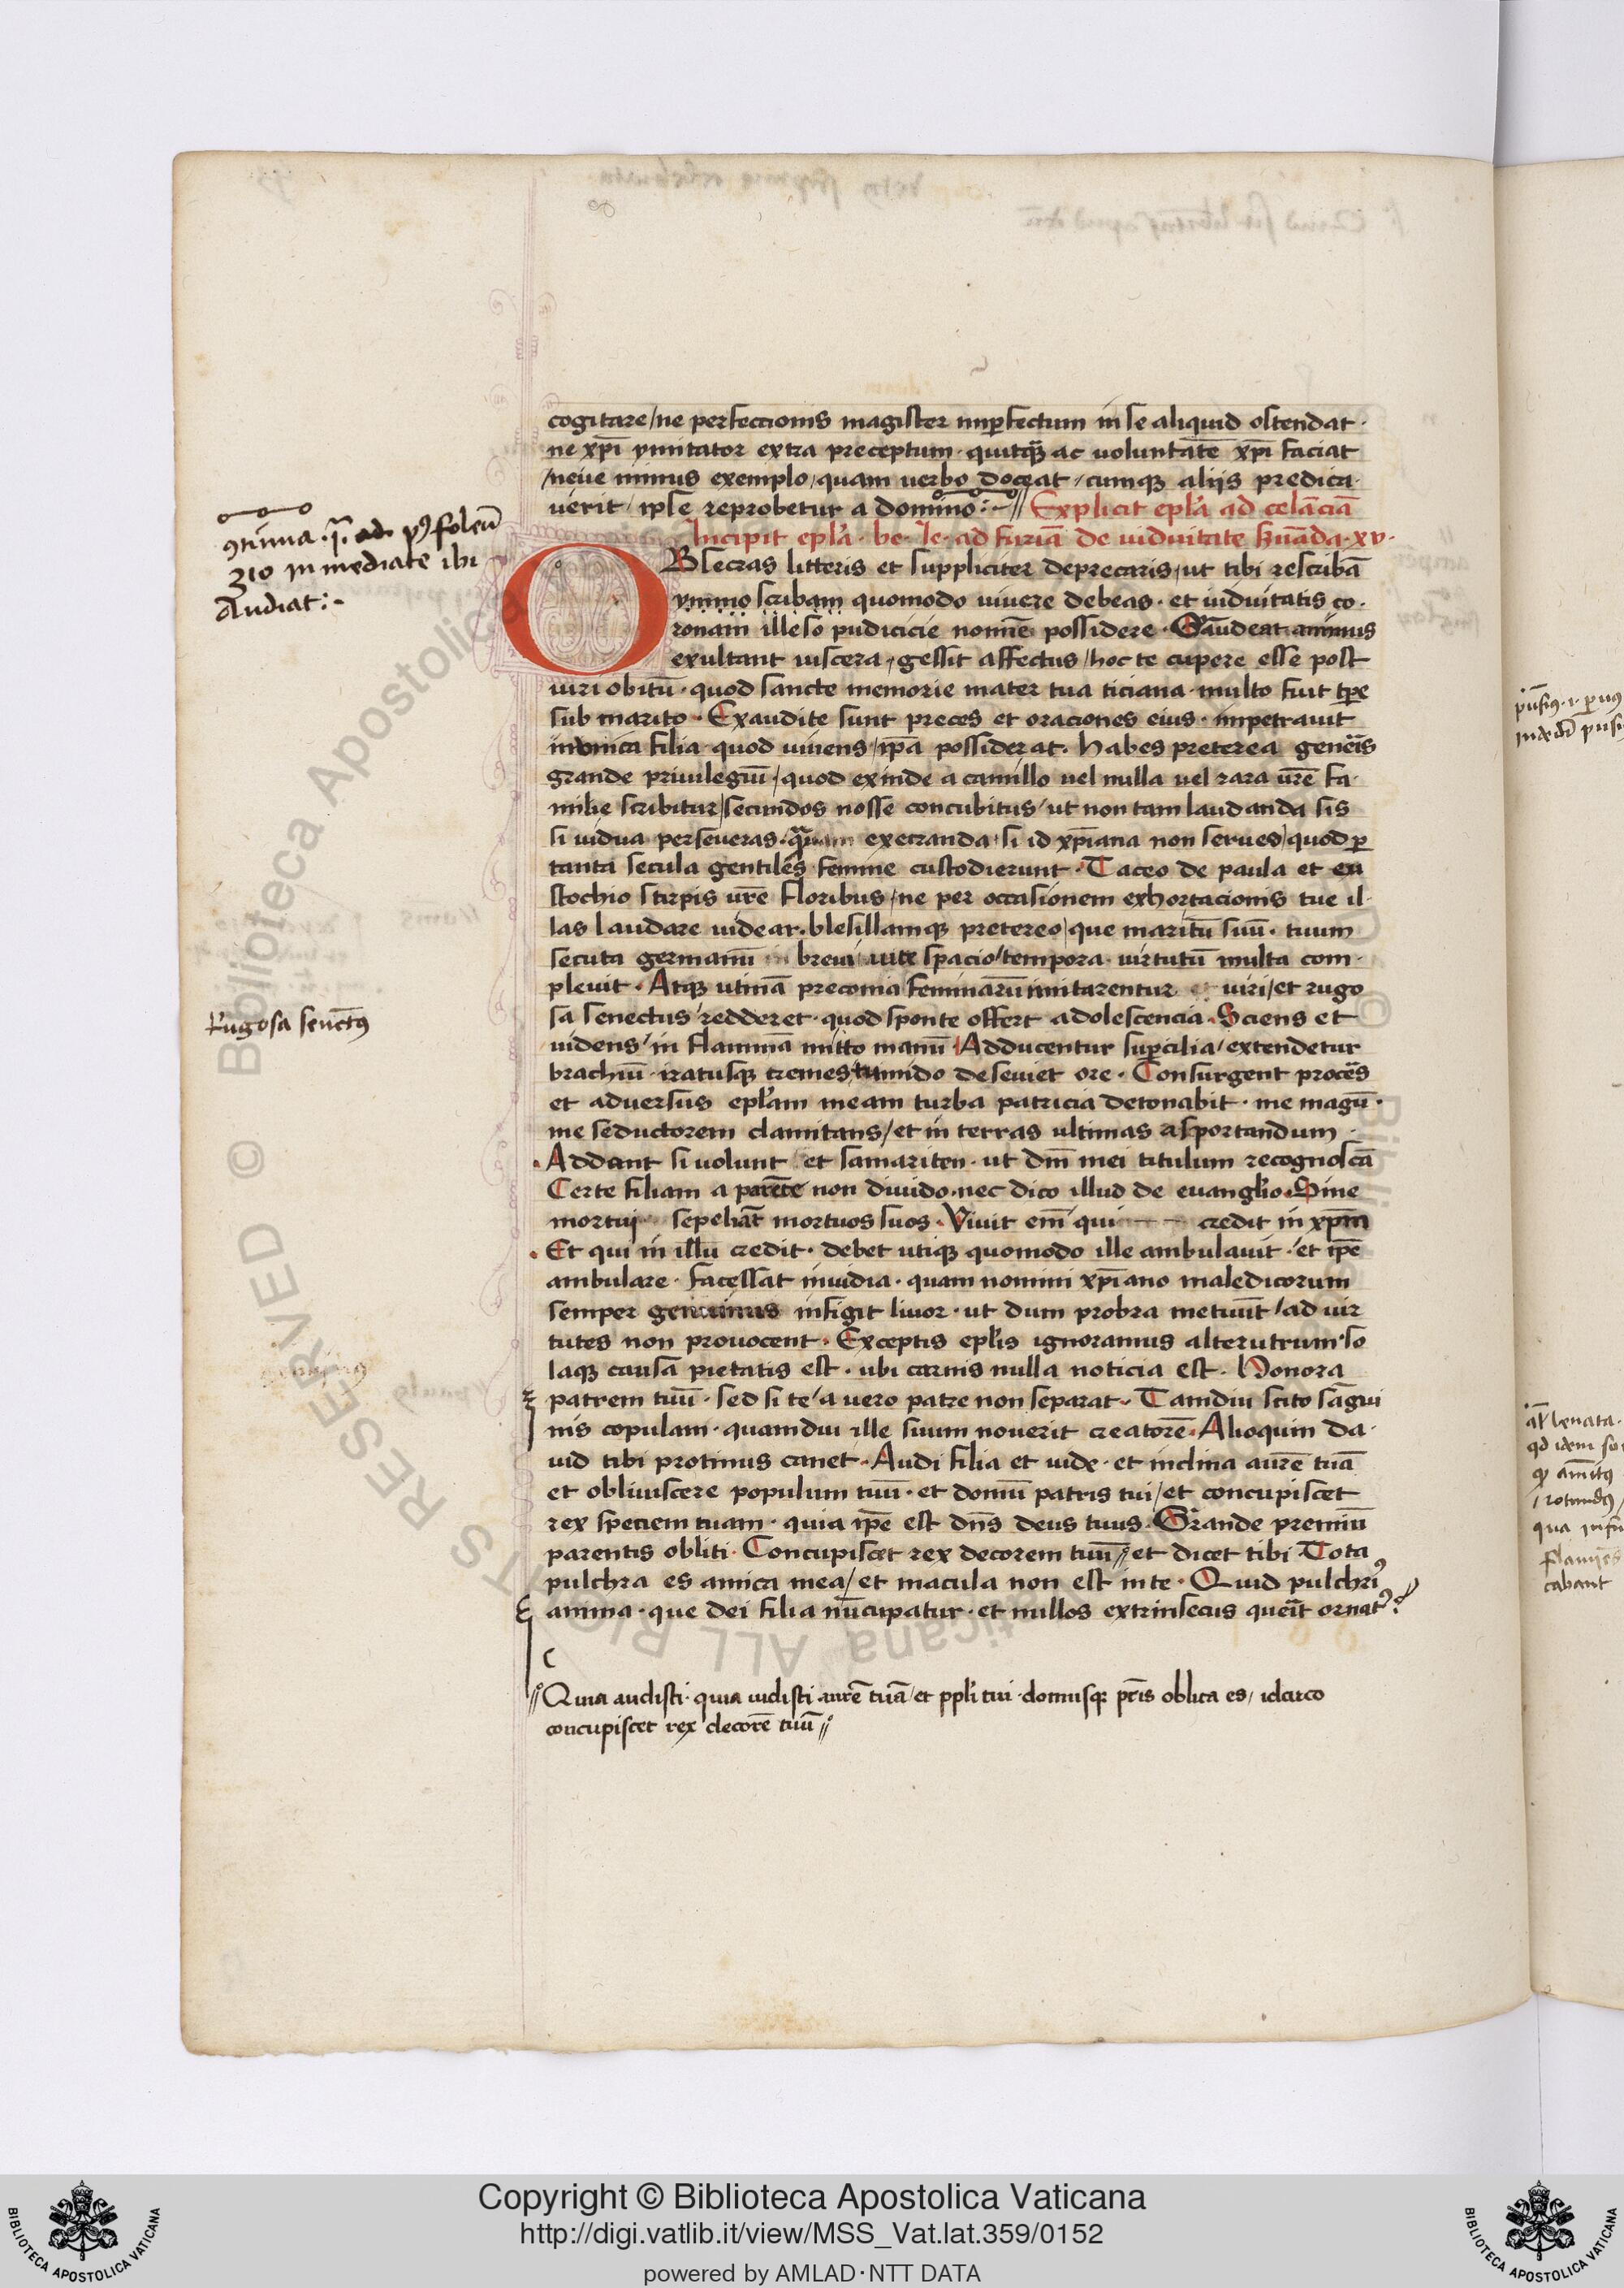 cogitare / ne perfectionis magister imperfectum in se aliquid ostendat ·
ne xp̄i ymitator extra preceptum · quitq̄ꝫ ac voluntatē xp̄i faciat
/ neue minus exemplo / quam uerbo doceat / cumqꝫ aliis predica·
uerit / ipse reprobetur a domino :- // Explicit epl̄a ad celāciā
Incipit epl̄a · be · Ie · ad furiā de uiduitate ẜuāda · xv ·
OBsecras litteris et suppliciter deprecaris / ut tibi rescribā
ymmo scribam quomodo uiuere debeas · et uiduitatis co·
ronam illeso pudicicie nomīe possidere · Gaudeat animus
exultant uiscera / gessit affectus / hoc te cupere esse post
uiri obitū · quod sancte memorie mater tua ticiana · multo fuit tp̄e
sub marito · Exaudite sunt preces et oraciones eius · impetrauit
in unica filia · quod uiuens / ip̄a possiderat · habes preterea genēis
grande priuilegiū / quod exinde a camillo uel nulla uel rara ur̄e fa·
milie scribitur / secundos nosse concubitus / ut non tam laudanda sis
si uidua perseueras · quam execranda · si id xp̄iana non serues / quod ꝑ
tanta secula gentiles femine custodierunt · Taceo de paula et eu
stochio stirpis ur̄e floribus / ne per occasionem exhortacionis tue il·
las laudare uidear · blesillamqꝫ pretereo / que maritū suū · tuum
secuta germanū in breui uite spacio / tempora · uirtutū multa com·
pleuit · Atqꝫ utinā preconia feminarū imitarentur et uiri / et rugo
sa senectus / redderet · quod sponte offert adolescencia · Sciens et
uidens / in flammā mitto manū · Adducentur suꝑcilia / extendetur
brachiū · iratusqꝫ cremes / tumido deseuiet ore · Consurgent procēs
et aduersus epl̄am meam turba patricia detonabit · me magū ·
me seductorem clamitans / et in terras ultimas asportandum ·
Addant si uolunt et samariten · ut dn̄i mei titulum recognoscā
Certe filiam a parēte non diuido · nec dico illud de euangl̄io · Sine
mortui sepeliāt mortuos suos · Viuit em̄ qui credit in xp̄m
Et qui in illū credit · debet utiqꝫ quomodo ille ambulauit · et ip̄e
ambulare · facessat inuidia · quam nomini xp̄iano maledicorum
semper genuinus infigit liuor · ut dum probra metuūt / ad uir
tutes non prouocent · Exceptis epl̄is ignoramus alterutrum · so
laqꝫ causa pietatis est · ubi carnis nulla noticia est · Honora
patrem tuū · sed si te / a uero patre non separat · Tamdiu scito sāgui
nis copulam · quamdiu ille suum nouerit creatorē · Alioquin da·
uid tibi protinus canet · Audi filia et uide · et inclina aurē tuā
et obliuiscere populum tuū · et domū patris tui / et concupiscet
rex speciem tuam · quia ip̄e est dn̄s deus tuus · Grande premiū
parentis obliti · Concupiscet rex decorem tuū // et dicet tibi · Tota
pulchra es amica mea / et macula non est in te · Quid pulchriꝰ
anima · que dei filia nūcupatur · et nullos extrinsecus querit ornatꝰ?
// Quia audisti · quia uidisti aurē tuā / et ppl̄i tui · domusqꝫ pr̄is oblita es / idcirco
concupiscet rex decorē tuū //
ꝯtinua · ad pꝰ foleū
310 inmediate ibi
Audiat :-
Rugosa senectꝰ
Copyright © Biblioteca Apostolica Vaticana
http://digi.vatlib.it/view/MSS_Vat.lat.359/0152
powered by AMLAD·NTT DATA
BIBLIOTECA APOSTOLICA VATICANA
BIBLIOTECA APOSTOLICA VATICANA